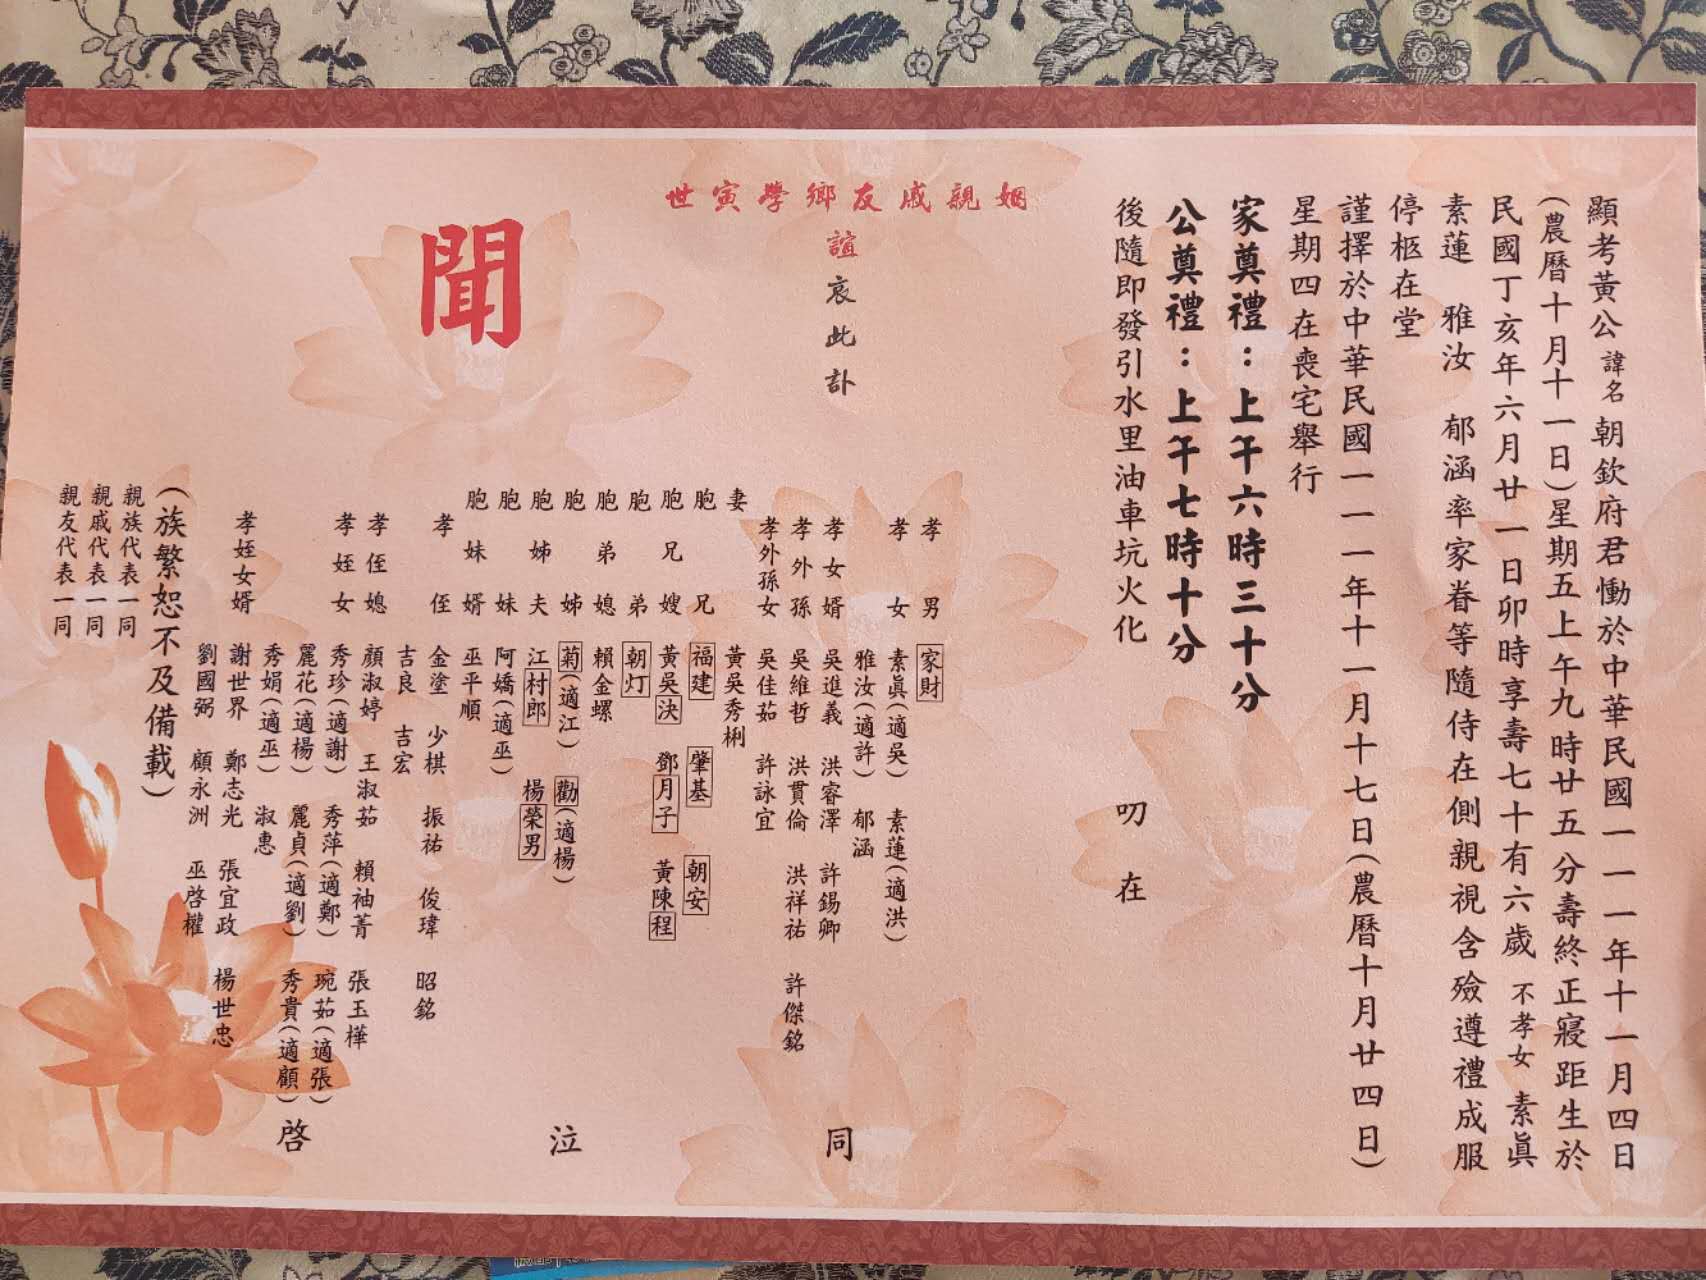 顯考黃公諱名朝欽府君慟於中華民國一一一年十一月四日
(農曆十月十一日)星期五上午九時廿五分壽終正寢距生於
民國丁亥年六月廿一日卯時享壽七十有六歲不孝女素眞
素蓮 雅汝 郁涵率家眷等隨侍在側親視含殮遵禮成服
停柩在堂
謹擇於中華民國一一一年十一月十七日(農曆十月廿四日)
星期四在喪宅舉行
家奠禮:上午六時三十分
公奠禮:上午七時十分
後隨即發引水里油車坑火化
叨在
姻親戚友鄉學寅世
誼哀此訃
聞
孝男 家財
孝女 素眞(適吳) 素蓮(適洪)
雅汝(適許) 郁涵
孝女婿 吳進義 洪睿澤 許錫卿
孝外孫 吳維哲 洪貫倫 洪祥祐 許傑銘
孝外孫女 吳佳茹 許詠宜
妻 黃吳秀梸
胞兄 福建 肇基 朝安
胞兄嫂 黃吳決 鄧月子 黃陳程
胞弟 朝灯
胞弟媳 賴金螺
胞姊 菊(適江) 勸(適楊)
胞姊夫 江村郎 楊榮男
胞妹 阿嬌(適巫)
胞妹婿 巫平順
孝侄 金塗 少棋 振祐 俊瑋 昭銘
吉良 吉宏
孝侄媳 顏淑婷 王淑茹 賴袖菁 張玉樺
孝姪女 秀珍(適謝) 秀萍(適鄭) 琬茹(適張)
麗花(適楊) 麗貞(適劉) 秀貴(適顧)
秀娟(適巫) 淑惠
孝姪女婿 謝世界 鄭志光 張宜政 楊世忠
劉國弼 顧永洲 巫啓權
同泣啓
(族繁恕不及備載)
親族代表一同
親戚代表一同
親友代表一同